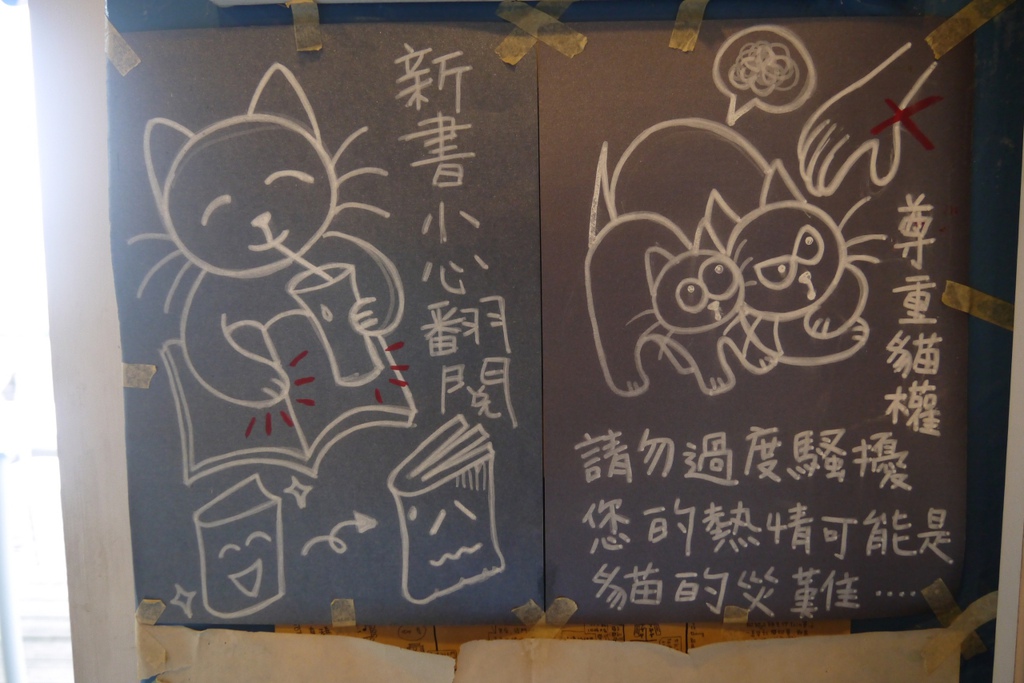 新書小心翻閱
尊重貓權
請勿過度騷擾
您的熱情可能是
貓的災難.....